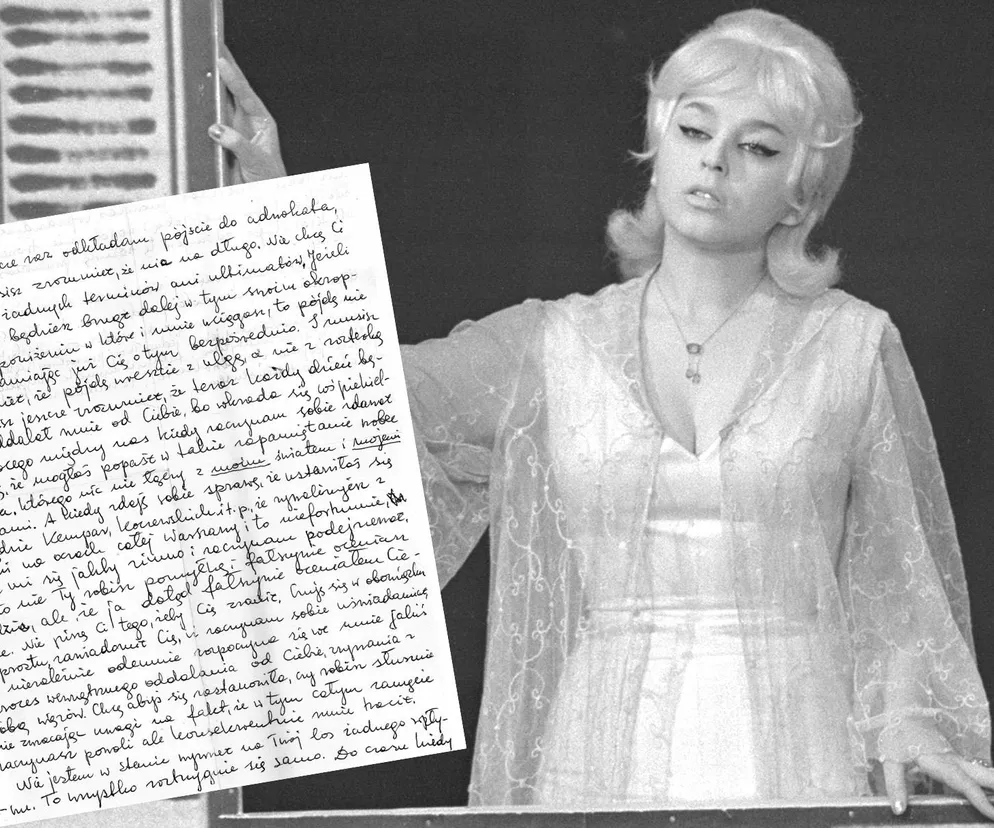 raz odkładam pójście do adwokata,
zrozumieć, że nie na długo. Nie chcę Ci
żadnych terminów ani ultimatów. Jeżeli
będziesz brnąć dalej w tym swoim okrop-
poniżeniu w które i mnie wciągasz, to pójdę nie
już Cię o tym bezpośrednio. I musisz
że pójdę wreszcie z ulgą, a nie z rozterką
jeszcze zrozumieć, że teraz każdy dzień bę-
mnie od Ciebie, bo wkrada się coś piekiel-
między nas kiedy zaczynam sobie zdawać
że mogłaś popaść w takie zapamiętanie wobec
którego nic nie łączy z moim światem i mojemi
A kiedy zdaję sobie sprawę, że ustawiłaś się
Kempar, że rywalizujesz z
na oczach całej Warszawy i to niefortunnie,
mi się jakby zimno i zaczynam podejrzewać,
nie Ty robisz pomyłkę i fałszywie oceniasz
ale że ja dotąd fałszywie oceniałem Cie-
Nie piszę Ci tego, żeby Cię zranić. Czuję się w obowiązku
prostu zawiadomić Cię, i zaczynam sobie uświadamiać
niezależnie odemnie rozpoczyna się we mnie jakiś
proces wewnętrznego oddalania od Ciebie, zrywania z
więzów. Chcę abyś się zastanowiła, czy robisz słusznie
nie zwracając uwagi na fakt, że w tym całym zamęcie
zaczynasz powoli ale konsekwentnie mnie tracić.
Nie jestem w stanie wywrzeć na Twój los żadnego wpły-
-wu. To wszystko rozstrzygnie się samo. Do czasu kiedy